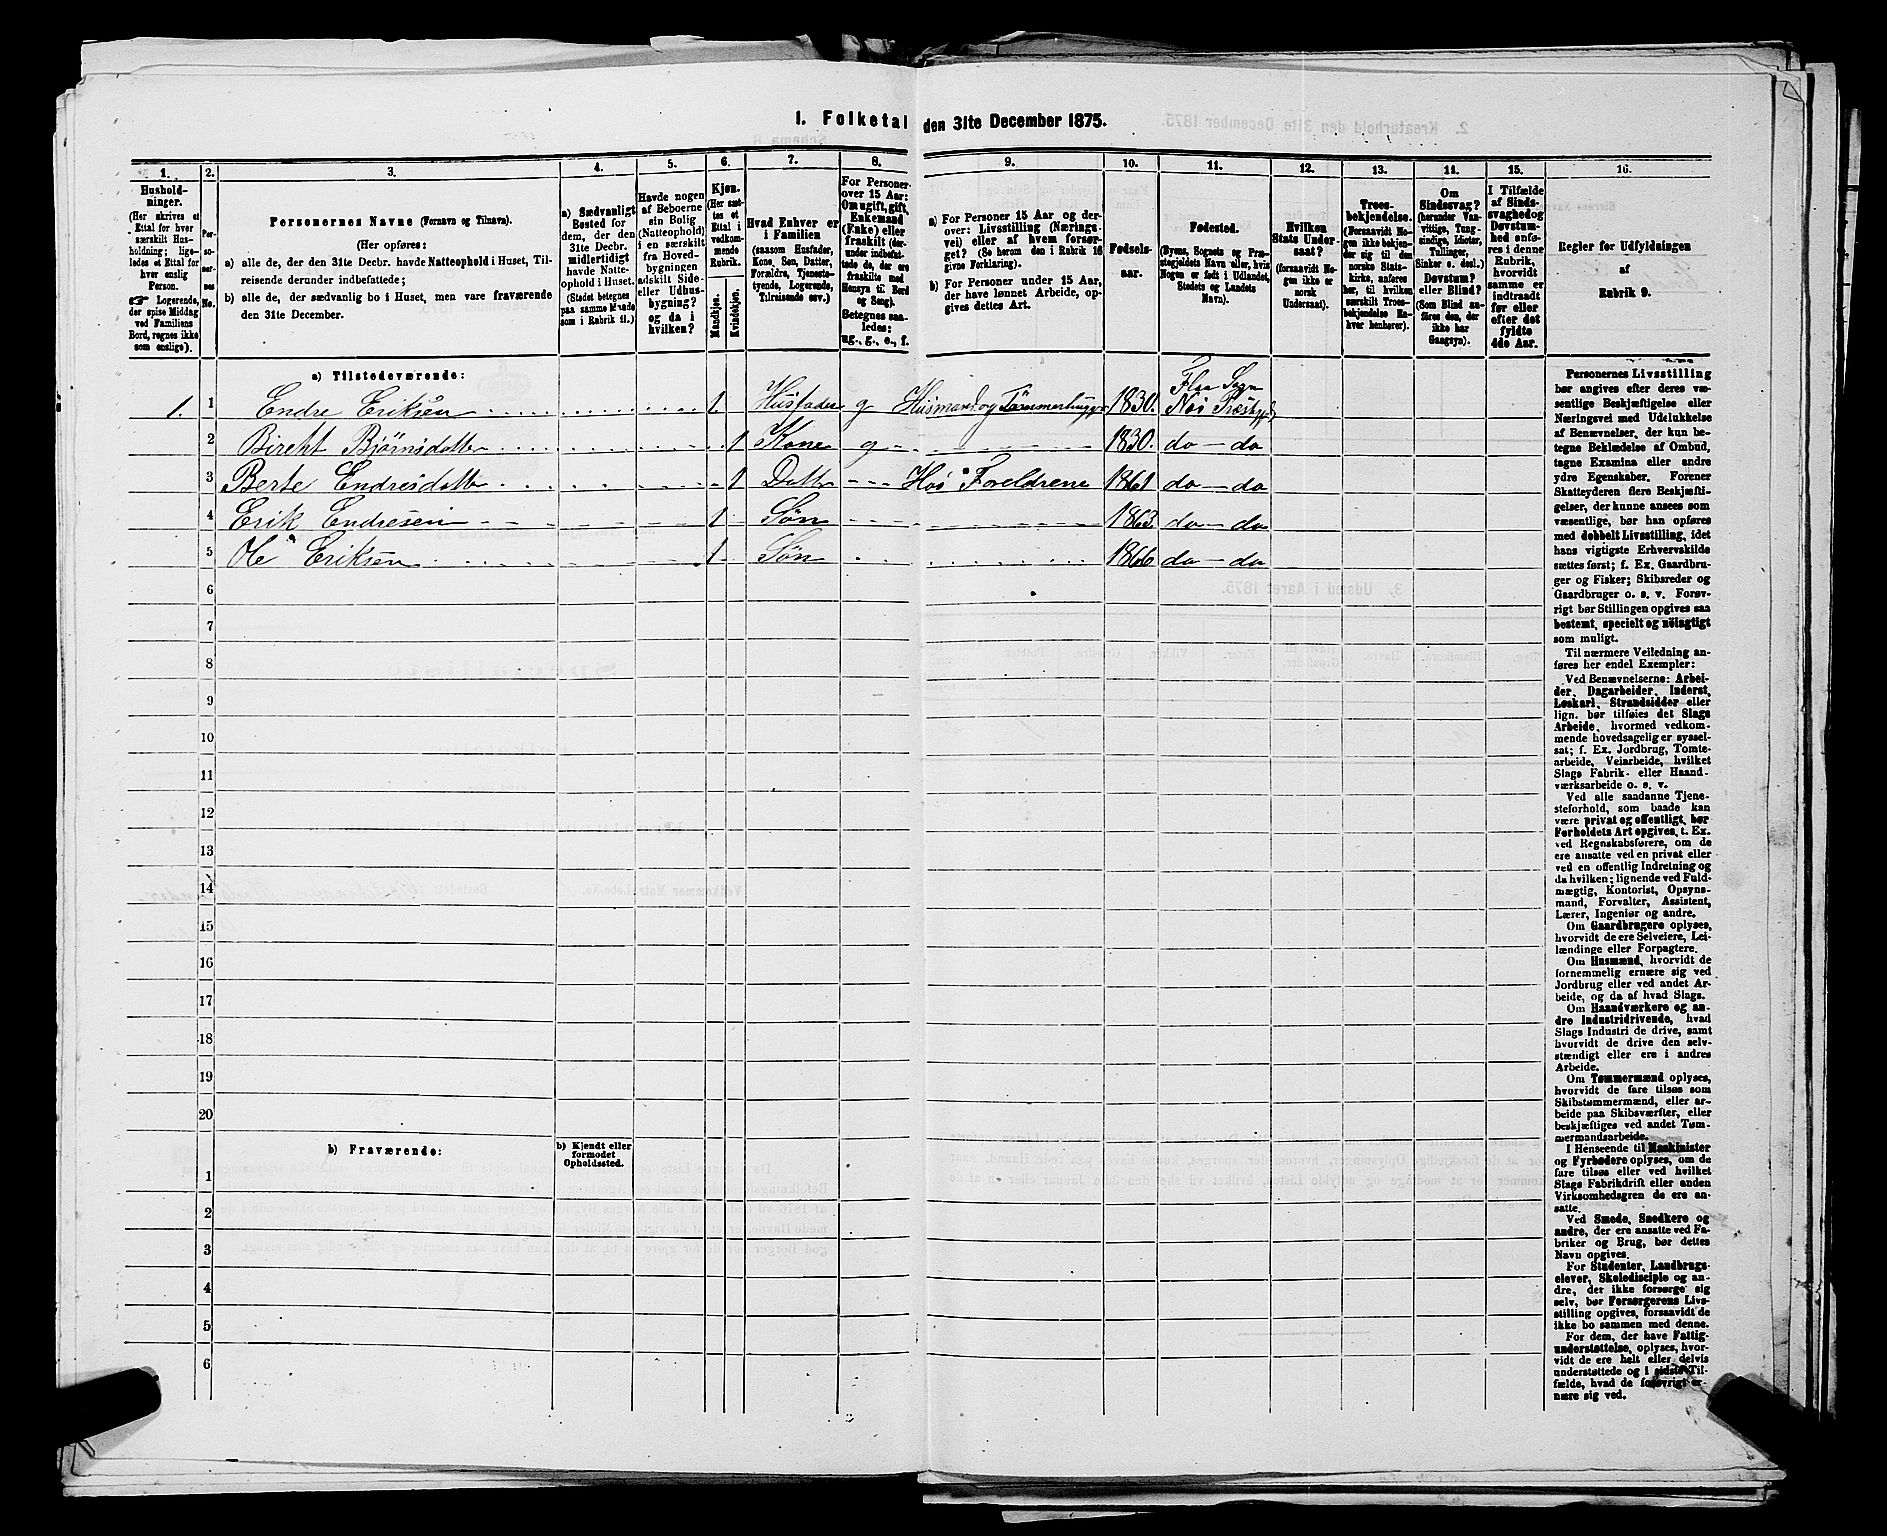 1. Folketal den 31te December 1875.
1.
2.
3.
4.
5.
6.
7.
8.
9.
10.
11.
12.
13.
14.
15.
16.
Hushold-
ninger.
(Her skrives et
Ettal for hver
særskilt Hus-
holdning; lige-
ledes et Ettal for
hver enslig
Person.
☞ Logerende,
der spise Middag
ved Familiens
Bord, regnes ikke
som enslige).
Per-
soner-
nes
No.
Personernes Navne (Fornavn og Tilnavn).
(Her opføres:
a) alle de, der den 31te Decbr. havde Natteophold i Huset, Til-
reisende derunder indbefattede;
b) alle de, der sædvanlig bo i Huset, men vare fraværende
den 31te December.
a) Sædvanligt
Bosted for
dem, der den
31te Decbr.
midlertidigt
havde Natte-
ophold i Huset.
(Stedet betegnes
paa samme Maade
som i Rubrik 11.)
Havde nogen
af Beboerne
sin Bolig
(Natteophold)
i en særskilt
fra Hoved-
bygningen
adskilt Side-
eller Udhus-
bygning?
og da i
hvilken?
Kjøn.
(Her sæt-
tes et
Ettal i
vedkom-
mende
Rubrik.
Mandkjøn.
Kvindekjøn.
Hvad Enhver er
i Familien
(saasom Husfader,
Kone, Søn, Datter,
Forældre, Tjeneste-
tyende, Logerende,
Tilreisende osv.)
For Personer
over 15 Aar:
Om ugift, gift,
Enkemand
(Enke) eller
fraskilt (der-
under indbefat-
tede de, der ere
fraskilte med
Hensyn til Bord
og Seng).
Betegnes saa-
ledes:
ug., g., e., f.
a) For Personer 15 Aar og der-
over: Livsstilling (Nærings-
vei) eller af hvem forsør-
get? (Se herom den i Rubrik 16
givne Forklaring).
b) For Personer under 15 Aar,
der have lønnet Arbeide, op-
gives dettes Art.
Fødsels-
aar.
Fødested.
(Byens, Sognets og Præ-
stegjeldets Navn eller, hvis
Nogen er født i Udlandet,
Stedets og Landets
Navn).
Hvilken
Stats Under-
saat?
(forsaavidt No-
gen ikke er
norsk
Undersaat).
Troes-
bekjendelse.
(Forsaavidt No-
gen ikke bekjen-
der sig til den
norske Stats-
kirke, anføres
her, til hvilken
særskilt Troes-
bekjendelse En-
hver henhører).
Om
Sindssvag?
(herunder Van-
vittige, Tung-
sindige, Idioter,
Tullinger,
Sinker o. desl.)
Døvstum?
eller Blind?
(Som Blind an-
føres den, der
ikke har
Gangsyn).
I Tilfælde
af Sinds-
svaghed og
Døvstum-
hed anfø-
res i denne
Rubrik,
hvorvidt
samme er
indtraadt
før eller
efter det
fyldte
4de Aar.
Regler for Udfyldningen
af
Rubrik 9.
a) Tilstedeværende:
1. 1 Endre Eriksen 1 Husfader g Husmand og Tømmerhugger 1830. Flaa Sogn
Nes Præstegj.
2 Bireht Bjørnsdatter 1 Kone g 1830. do - do
3 Berte Endresdatter 1 Datter Hos Foreldrene 1861 do - do
4 Erik Endresen 1 Søn 1863. do - do
5 Ole Eriksen 1 Søn 1866 do - do
6
7
8
9
10
11
12
13
14
15
16
17
18
19
20
b) Fraværende:
b) Kjendt eller
formodet
Opholdssted.
1
2
3
4
5
6
Personernes Livsstilling
bør angives efter deres væ-
sentlige Beskjæftigelse eller
Næringsvei med Udelukkelse
af Benævnelser, der kun be-
tegne Beklædelse af Ombud,
tagne Examina eller andre
ydre Egenskaber. Forener
Skatteyderen flere Beskjæfti-
gelser, der kunne ansees som
væsentlige, bør han opføres
med dobbelt Livsstilling, idet
hans vigtigste Erhvervskilde
sættes først; f. Ex. Gaardbru-
ger og Fisker; Skibsreder og
Gaardbruger o. s. v. Forøv-
rigt bør Stillingen opgives saa
bestemt, specielt og nöiagtigt
som muligt.
Til nærmere Veiledning an-
føres her endel Exempler:
Ved Benævnelserne: Arbei-
der, Dagarbeider, Inderst,
Løskarl, Strandsidder eller
lign. bør tilføies det Slags
Arbeide, hvormed vedkom-
mende hovedsagelig er syssel-
sat; f. Ex. Jordbrug, Tomte-
arbeide, Veiarbeide, hvilket
Slags Fabrik- eller Haand-
værksarbeide o. s. v.
Ved alle saadanne Tjene-
steforhold, som baade kan
være privat og offentligt, bør
Forholdets Art opgives, t. Ex.
ved Regnskabsførere, om de
ere ansatte ved en privat eller
ved en offentlig Indretning og
da hvilken; lignende ved Fuld-
mægtig, Kontorist, Opsyns-
mand, Forvalter, Assistent,
Lærer, Ingeniør og andre.
Om Gaardbrugere oplyses,
hvorvidt de ere Selveiere, Lei-
lændinge eller Forpagtere.
Om Husmænd, hvorvidt de
fornemmelig ernære sig ved
Jordbrug eller ved andet Ar-
beide, og da af hvad Slags.
Om Haandværkere og an-
dre Industridrivende, hvad
Slags Industri de drive, samt
hvorvidt de drive den selv-
stændigt eller ere i andres
Arbeide.
Om Tømmermænd oplyses,
hvorvidt de fare tilsøs som
Skibstømmermænd, eller ar-
beide paa Skibsværfter, eller
beskjæftiges ved andet Tøm-
mermandsarbeide.
I Henseende til Maskinister
og Fyrbødere oplyses, om de
fare tilsøs eller ved hvilket
Slags Fabrikdrift eller anden
Virksomhedsgren de ere an-
satte.
Ved Smede, Snedkere og
andre, der ere ansatte ved Fa-
briker og Brug, bør dettes
Navn opgives.
For Studenter, Landbrugs-
elever, Skoledisciple og an-
dre, der ikke forsørge sig
selv, bør Forsørgerens Livs-
stilling opgives, forsaavidt de
ikke bo sammen med denne.
For dem, der have Fattig-
understøttelse, oplyses, hvor-
vidt de ere helt eller delvis
understøttede og i sidste Til-
fælde, hvad de forøvrigt er-
nære sig ved.